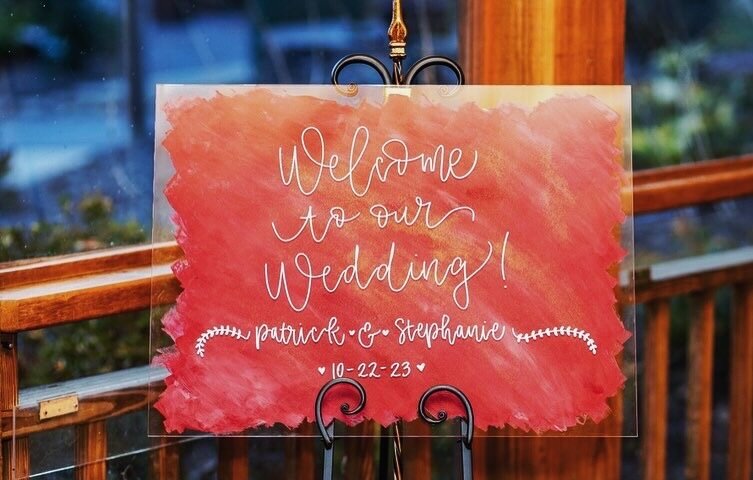 Welcome
to our
Wedding!
Patrick & Stephanie
10-22-23